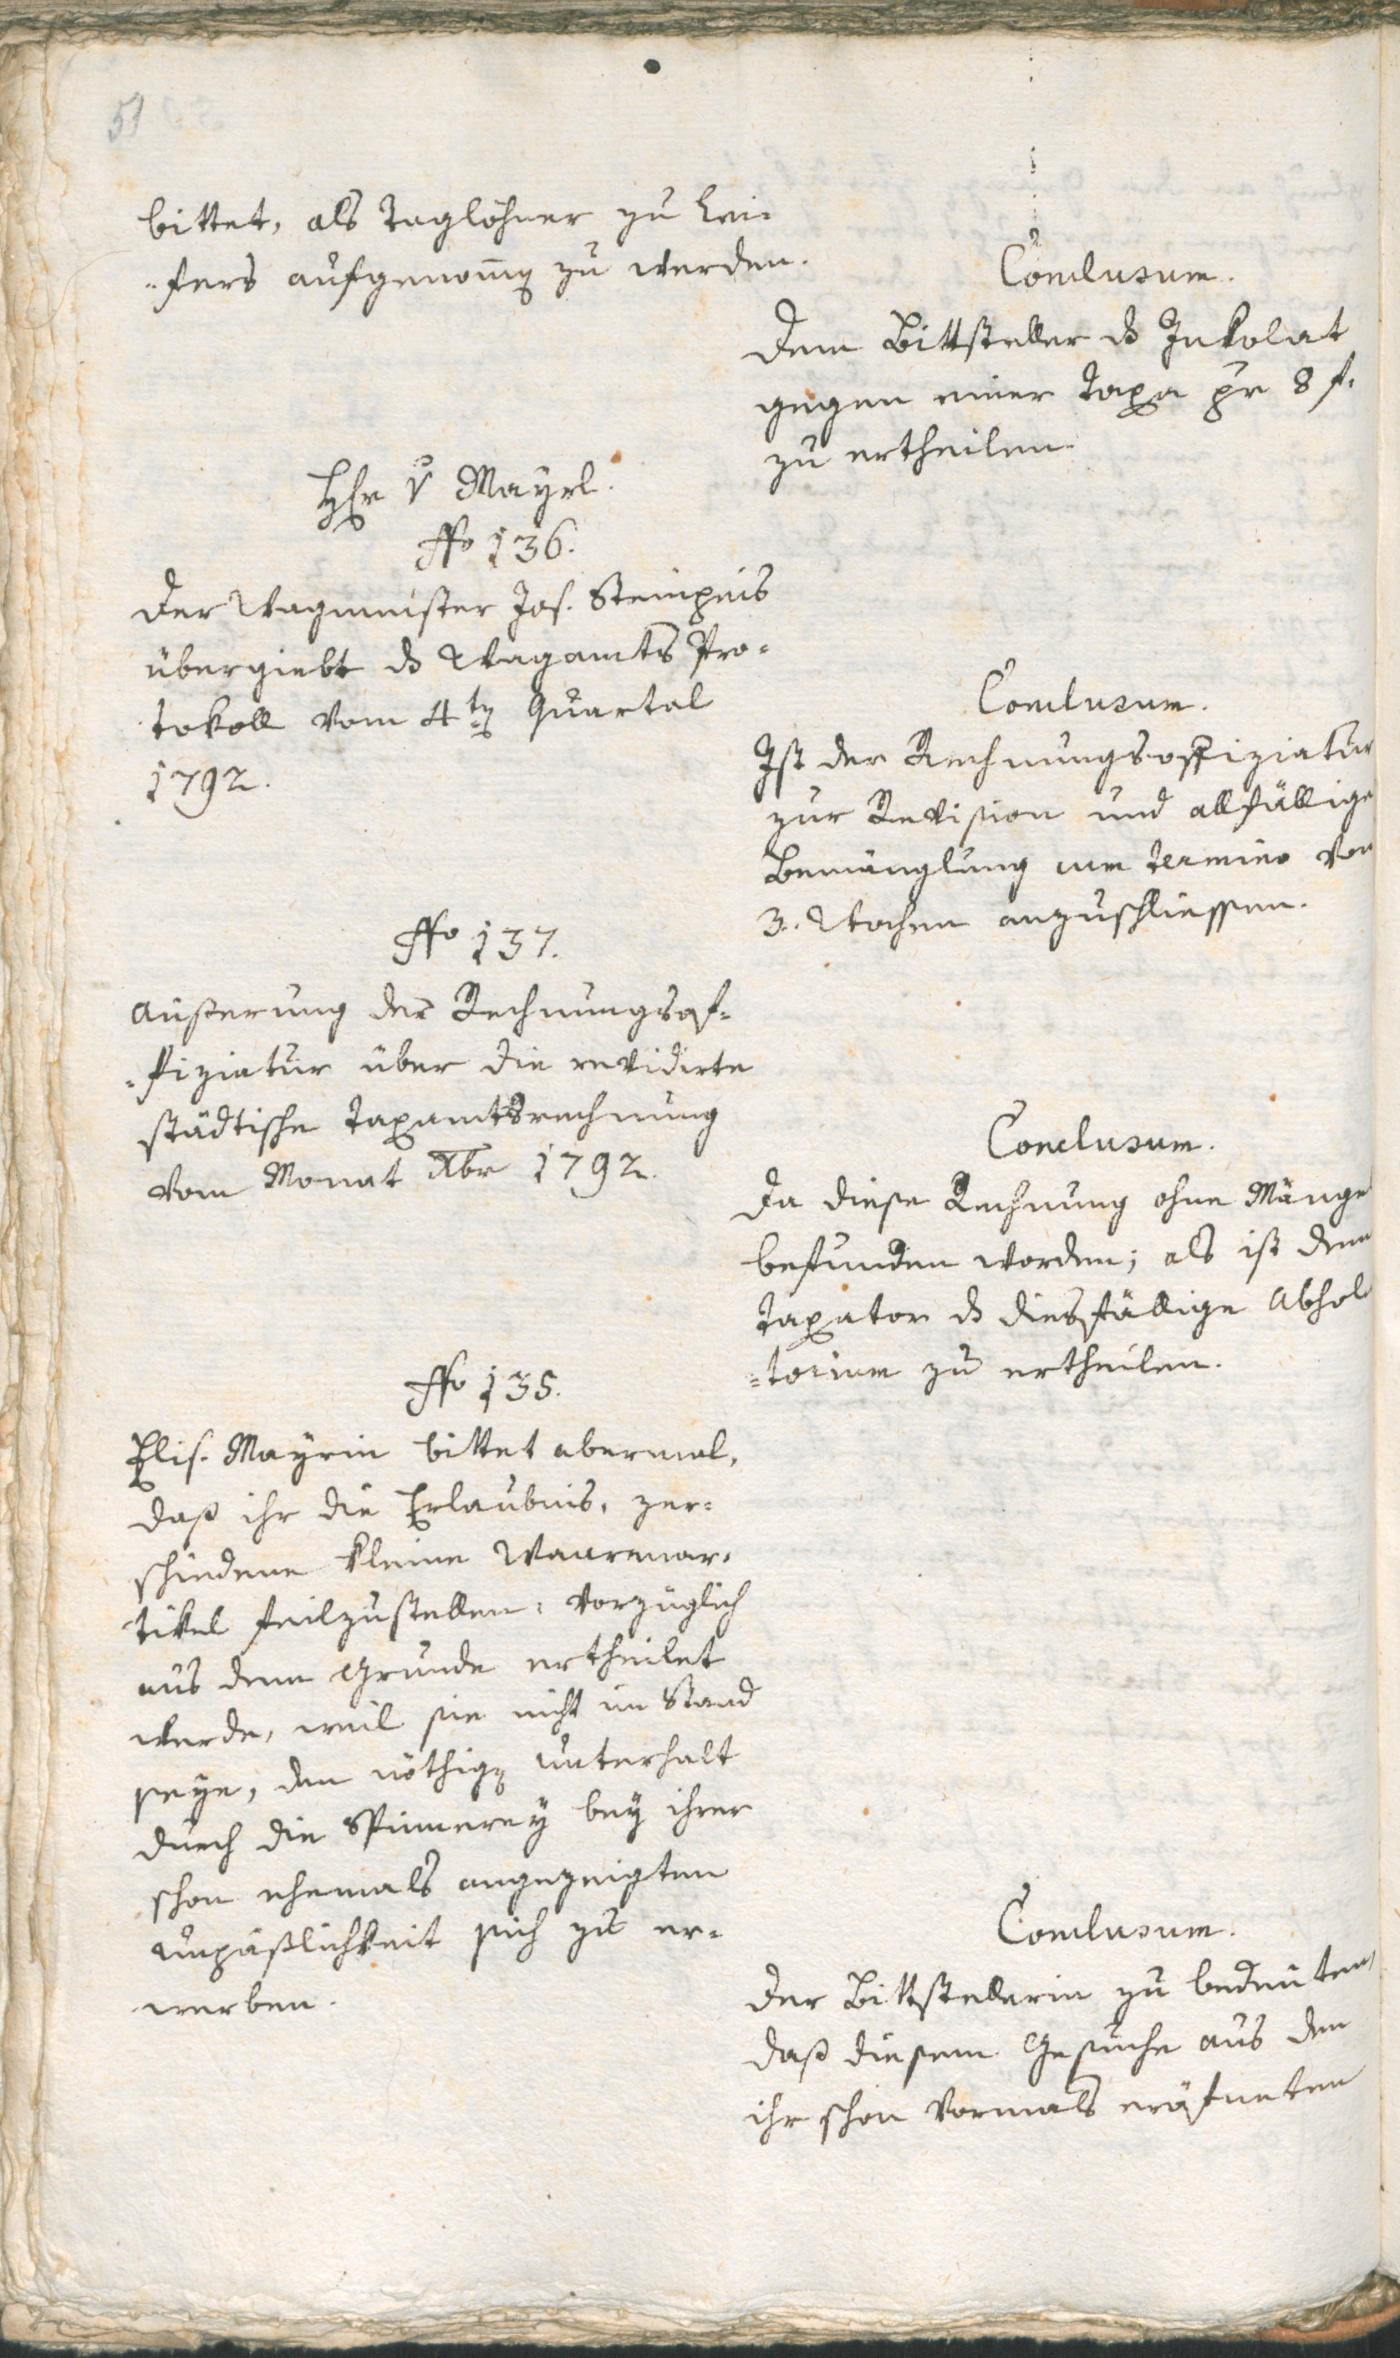 51
bittet, als Taglöhner zu Lei-
-fers aufgenomen zu werden.
Conclusum.
Dem Bittsteller ds Inkolat
gegen einer Taxa pr 8 f.
zu ertheilen.
Hr v Mayrl.
No 136.
Der Wagmeister Jos. Steinpeis
übergiebt ds Wagamts Pro-
tokoll vom 4ten Quartal
1792.
Conclusum.
Ist der Rechnungsoffiziatur
zur Revision und allfällige
Bemänglung cum termino von
3. Wochen anzuschliessen.
No 137.
Äußerung der Rechnungsof-
-fiziatur über die revidirte
städtische Taxamtsrechnung
vom Monat Xbr 1792.
Conclusum.
Da diese Rechnung ohne Mänge
befunden worden; als ist dem
Taxator ds diesfällige Absol
-torium zu ertheilen.
No 135.
Elis. Mayrin bittet abermal,
daß ihr die Erlaubnis, ver-
schiedene kleine Waarenar-
tikel feilzustellen, vorzüglich
aus dem Grunde ertheilet
werde, weil sie nicht im Stand
seye, den nöthigen Unterhalt
durch die Spinnerey bey ihrer
schon ehemals angezeigten
Unpäßlichkeit sich zu er-
werben.
Conclusum.
Der Bittstellerin zu bedeuten,
daß diesem Gesuche aus den
ihr schon vormals eröfneten